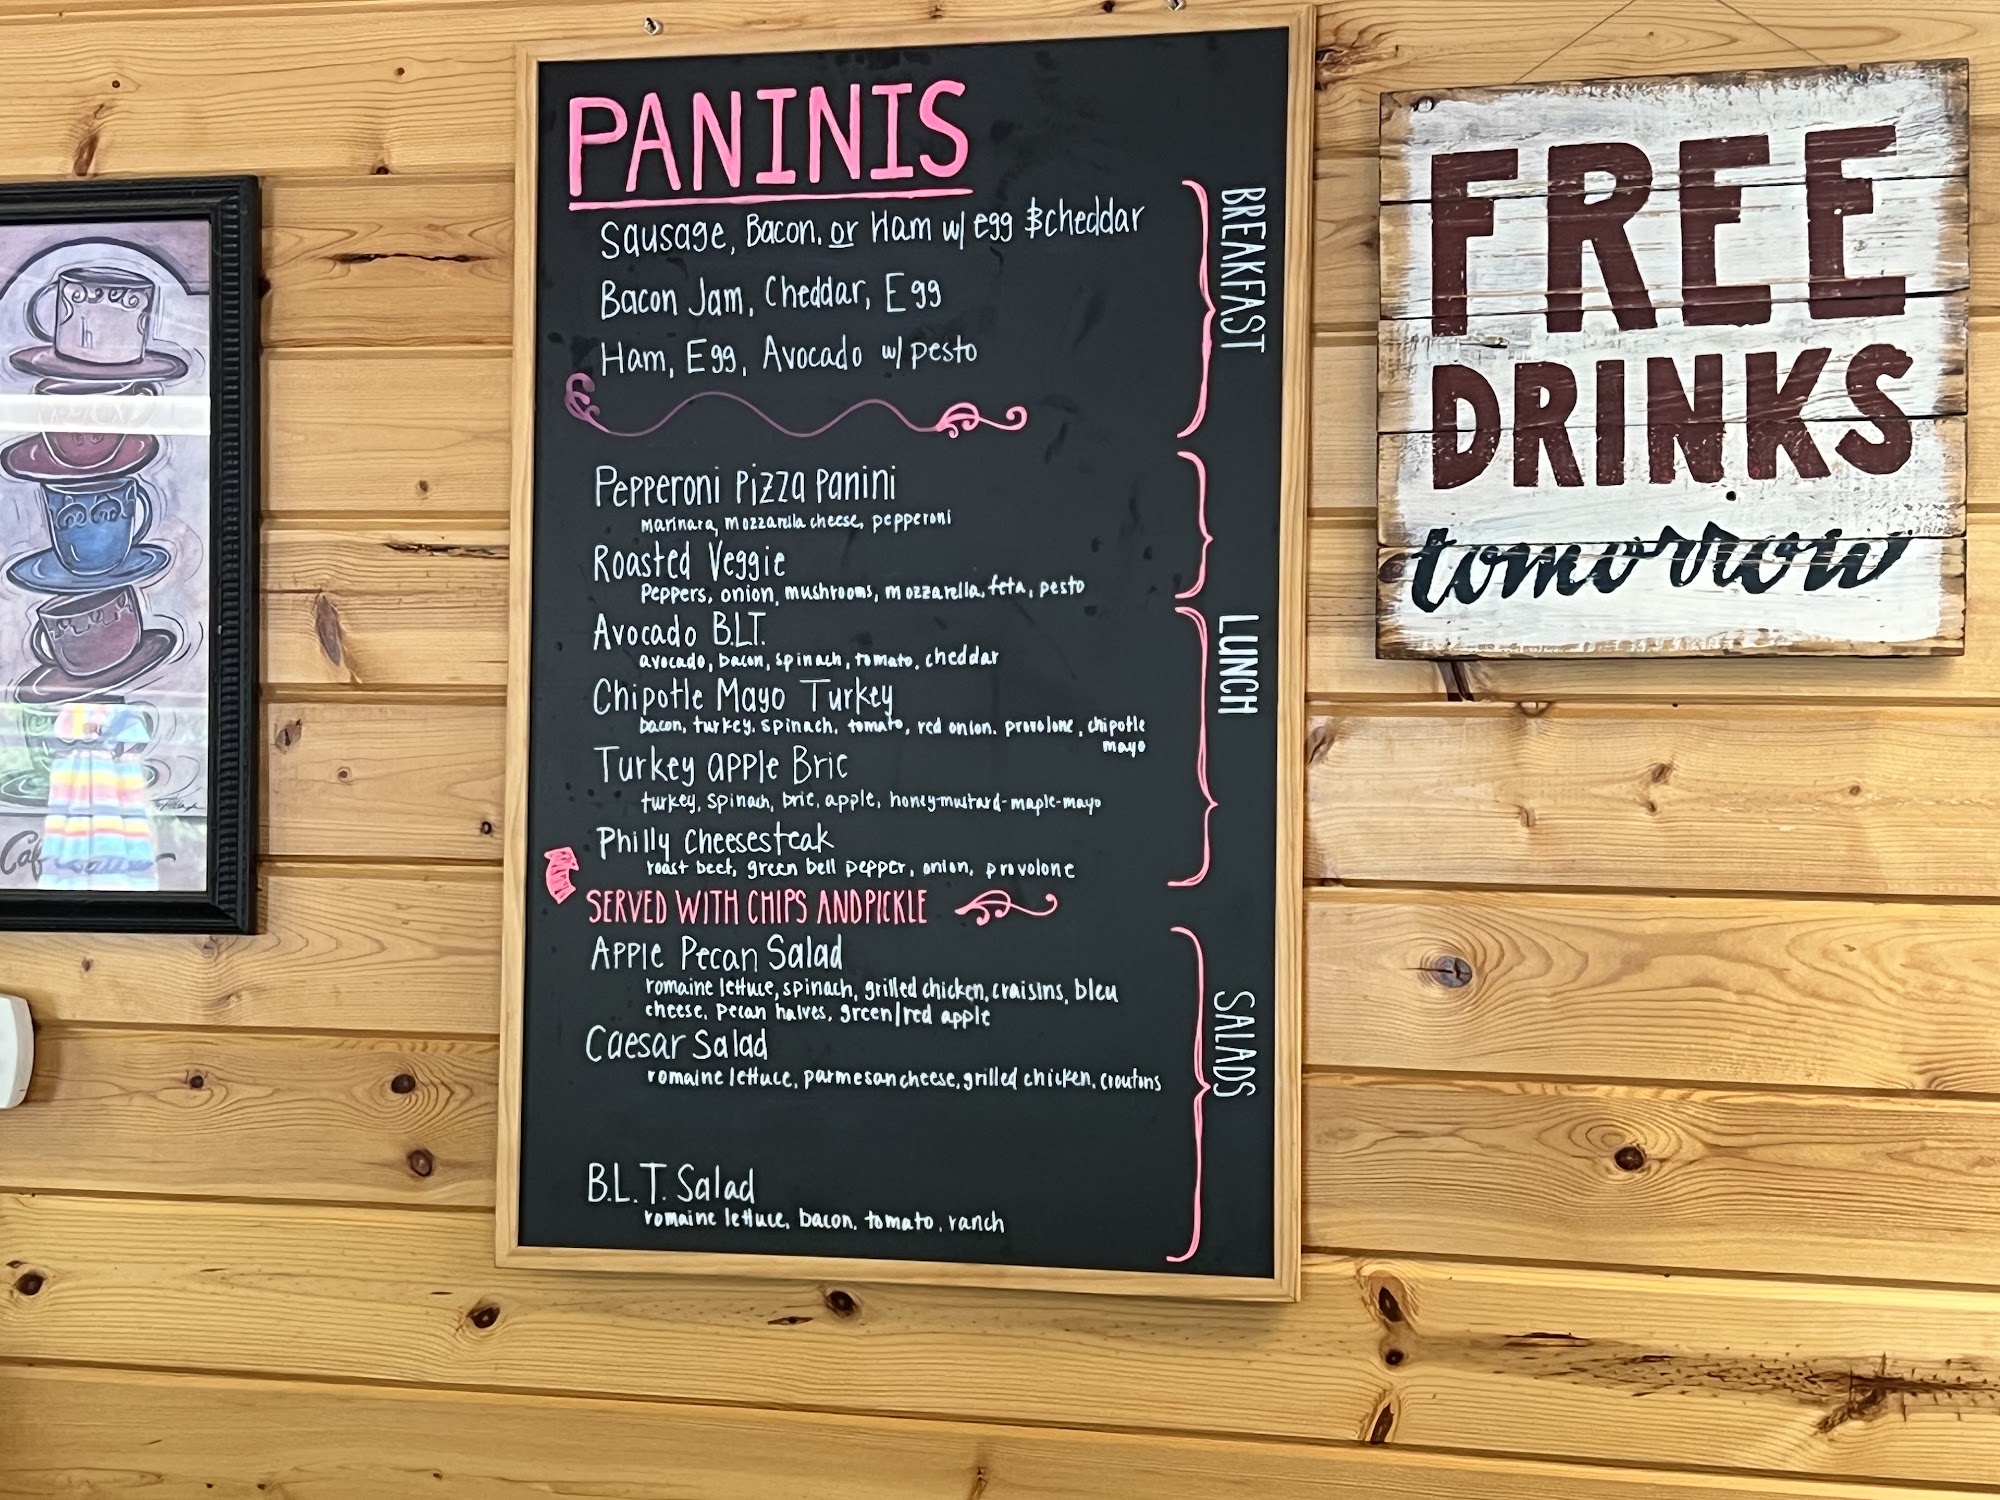 PANINIS
Sausage, Bacon, or Ham w/ egg & cheddar
Bacon Jam, Cheddar, Egg
Ham, Egg, Avocado w/ pesto
BREAKFAST
Pepperoni Pizza Panini
marinara, mozzarella cheese, pepperoni
Roasted Veggie
Peppers, onion, mushrooms, mozzarella, feta, pesto
Avocado B.L.T.
avocado, bacon, spinach, tomato, cheddar
Chipotle Mayo Turkey
bacon, turkey, spinach, tomato, red onion, provolone, chipotle
mayo
Turkey apple Brie
turkey, spinach, brie, apple, honey-mustard-maple-mayo
Philly Cheesesteak
roast beef, green bell pepper, onion, provolone
LUNCH
SERVED WITH CHIPS AND PICKLE
Apple Pecan Salad
romaine lettuce, spinach, grilled chicken, craisins, bleu
cheese, pecan halves, green/red apple
Caesar Salad
romaine lettuce, parmesan cheese, grilled chicken, croutons
B.L.T. Salad
romaine lettuce, bacon, tomato, ranch
SALADS
FREE
DRINKS
tomorrow
Caf